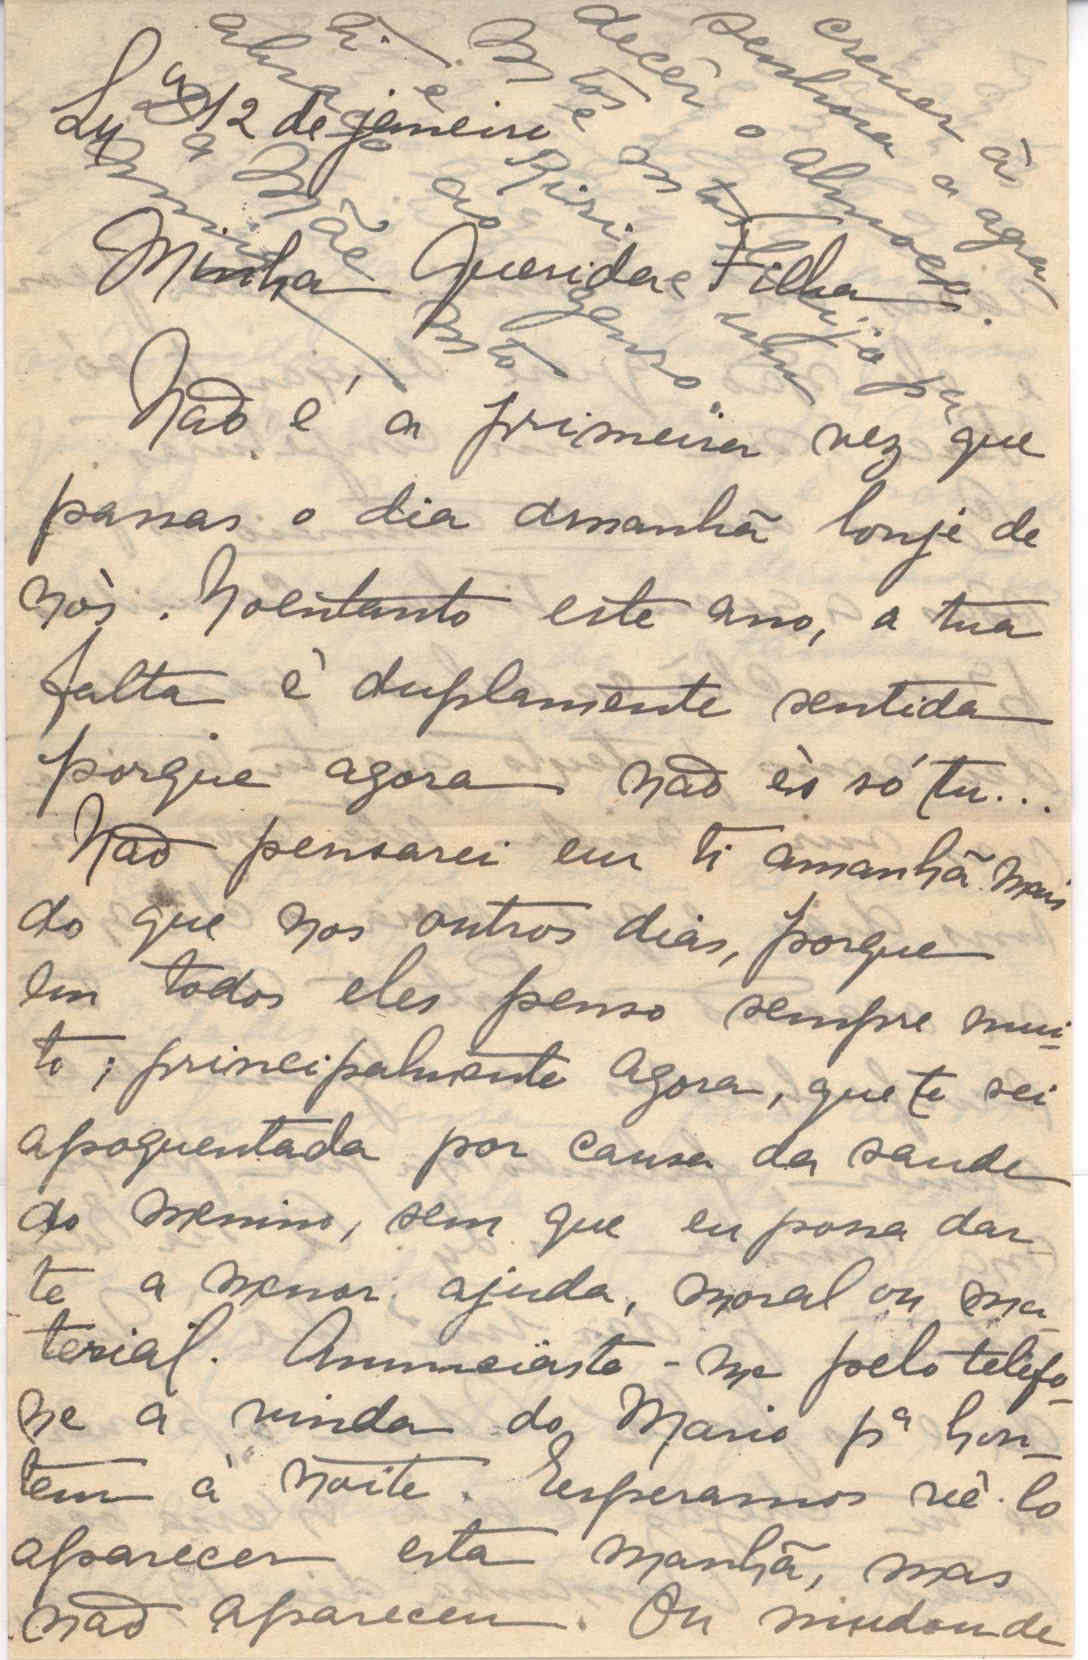 Lxa 12 de janeiro
Minha Querida Filha
Não é a primeira vez que
passas o dia àmanhã lonje de
nòs. Noentanto este ano, a tua
falta è duplamente sentida
porque agora não ès só tu...
Não pensarei em ti amanhã mais
do que nos outros dias, porque
em todos eles penso sempre mui-
to; principalmente agora, que te sei
apoquentada por causa da saude
do menino, sem que eu possa dar
te a menor ajuda, moral ou ma-
terial. Anunciaste-me pelo telefo-
ne a vinda do Mario pª hon-
tem à noite. Esperamos vê-lo
aparecer esta manhã, mas
não apareceu. Ou mudou de
escrever às
senhoras a agra
decer o almoço.